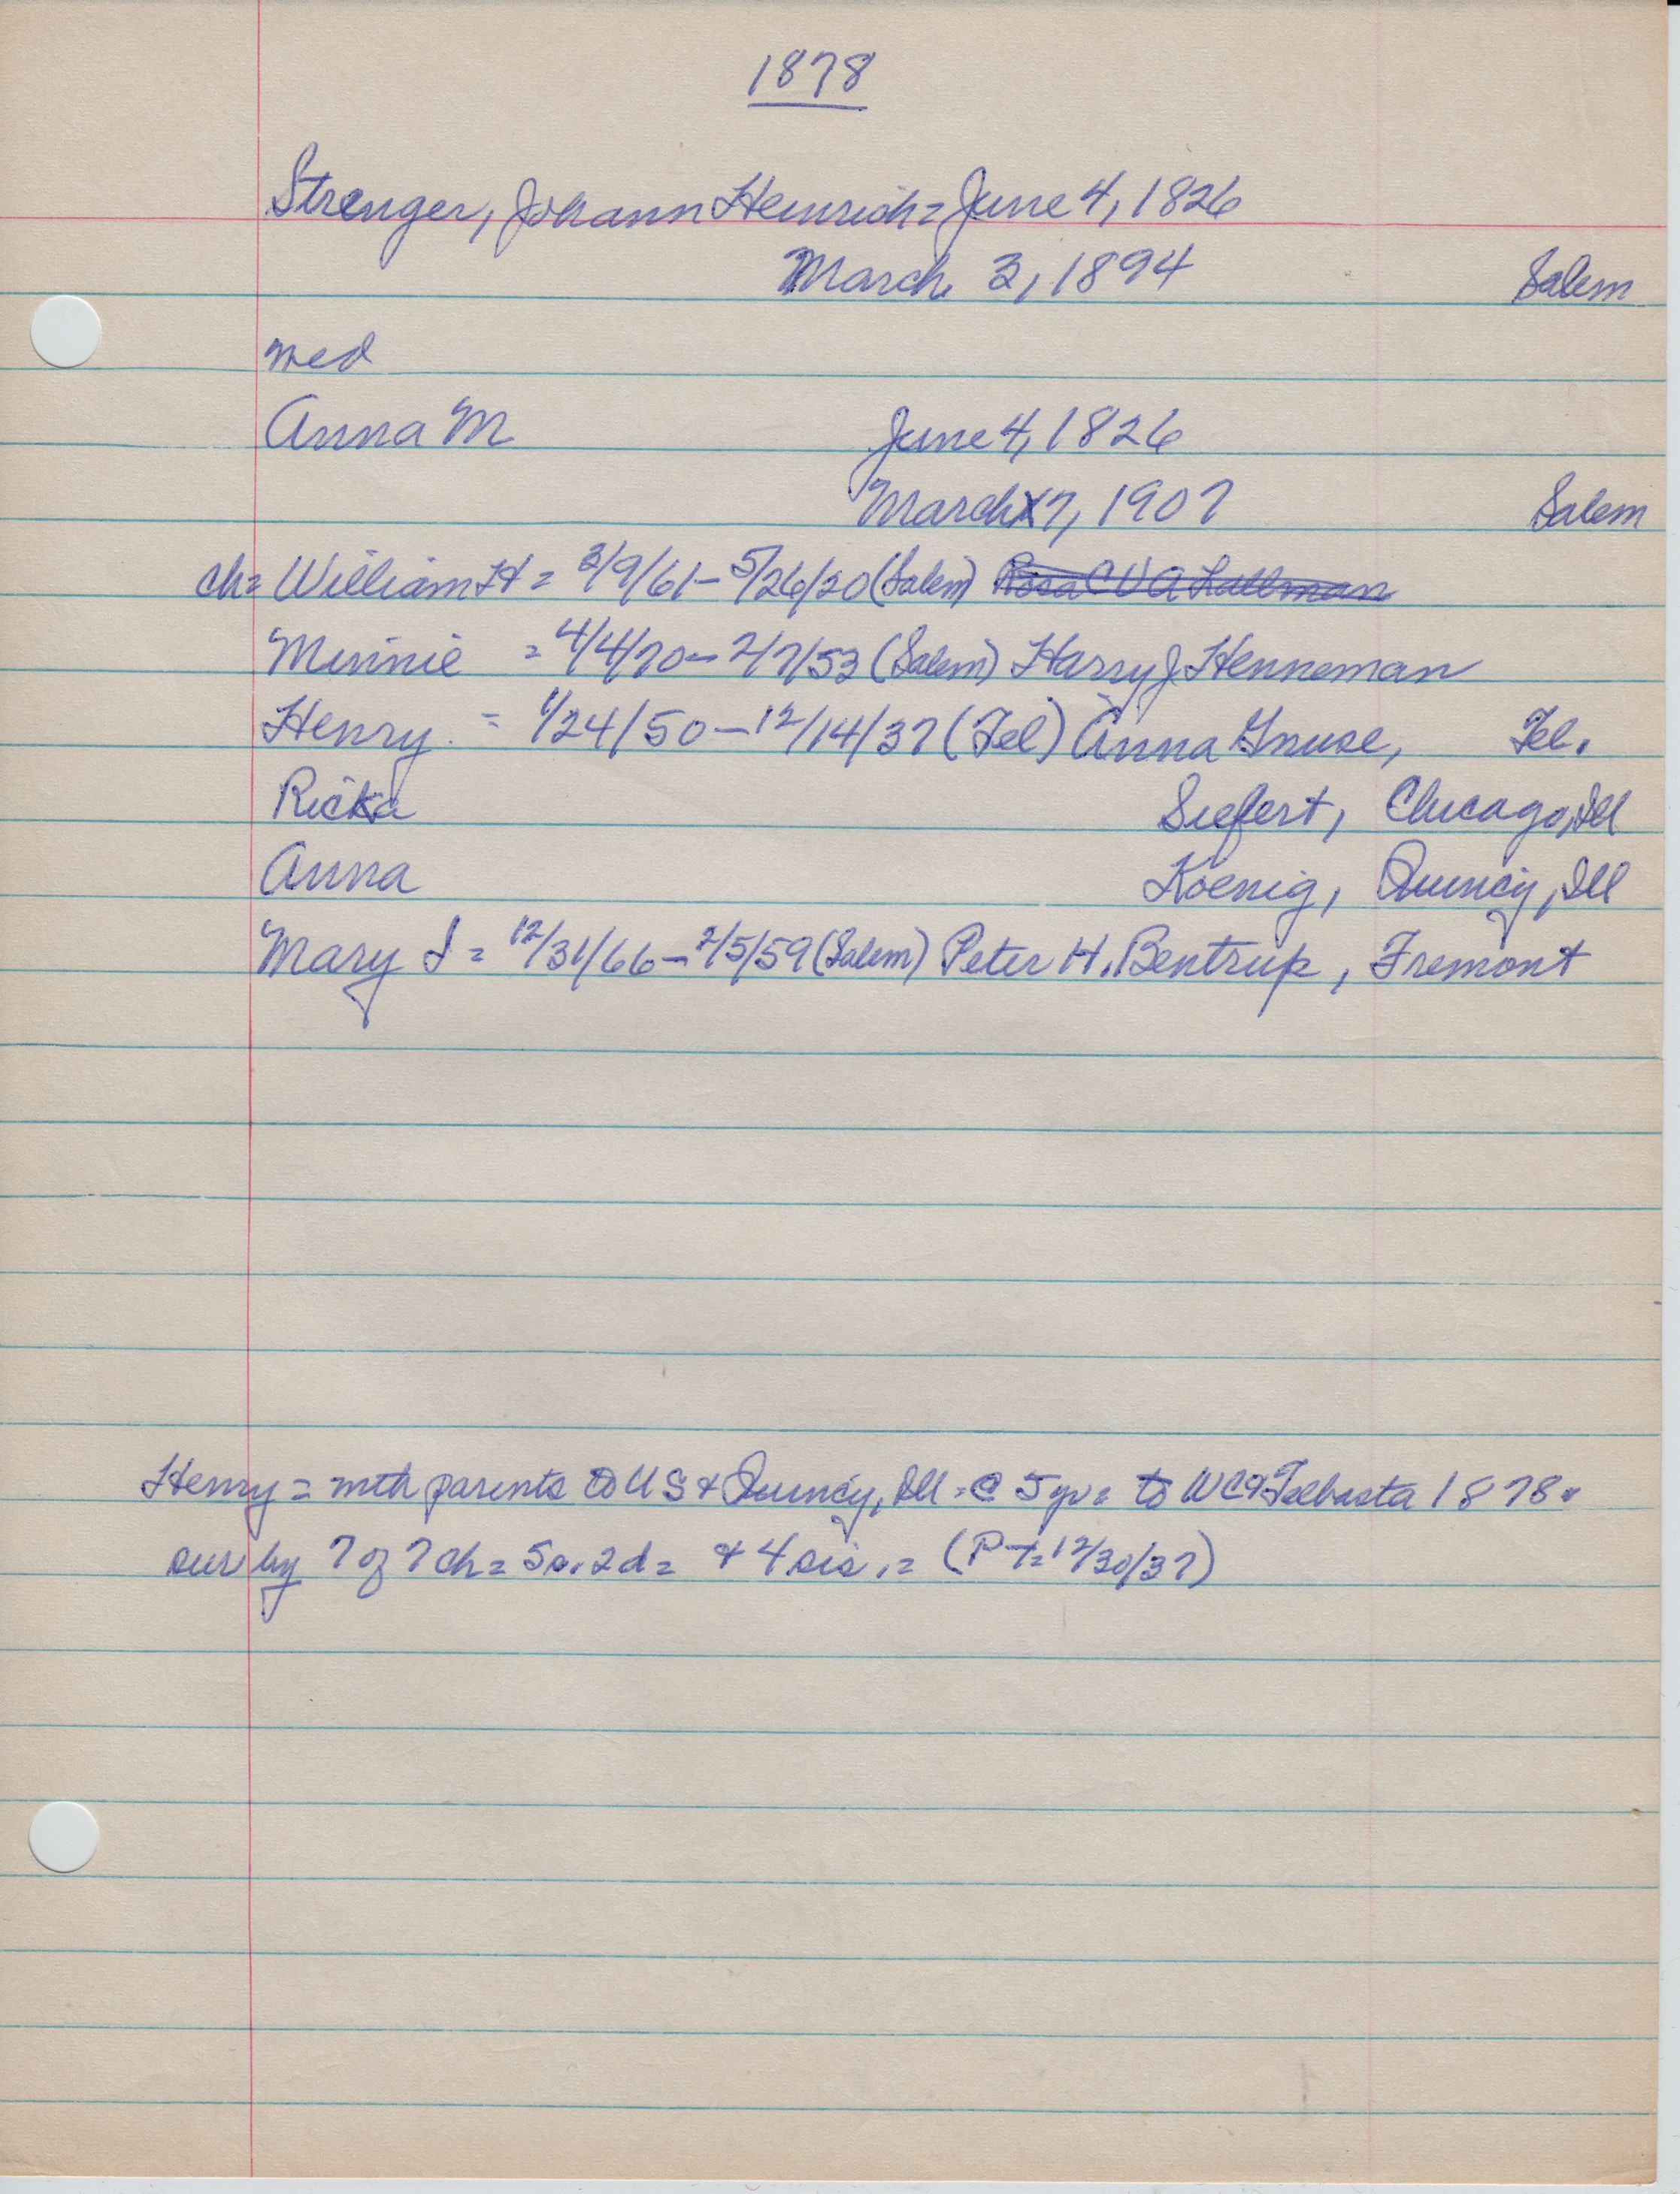 1878
Strenger, Johann Heinrich = June 4, 1826
March 3, 1894 Salem
med
Anna M June 4, 1826
March 7, 1907 Salem
ch = William H = 3/9/61 - 5/26/20 (Salem) Rosa C V A Kallman
Minnie = 4/4/70 - 2/7/53 (Salem) Harry J Henneman
Henry = 1/24/50 - 12/14/37 (Tel) Anna Gnuse, Tel.
Ricka Siefert, Chicago, Ill
Anna Koenig, Quincy, Ill
Mary S = 12/31/66 - 2/5/59 (Salem) Peter H. Bentrup, Fremont
Henry = with parents to US & Quincy, Ill = @ 5 yr = to WC & Telbasta 1878.
sur by 7 of 7 ch = 5s. 2d = & 4 sis. = (P-t = 12/30/37)